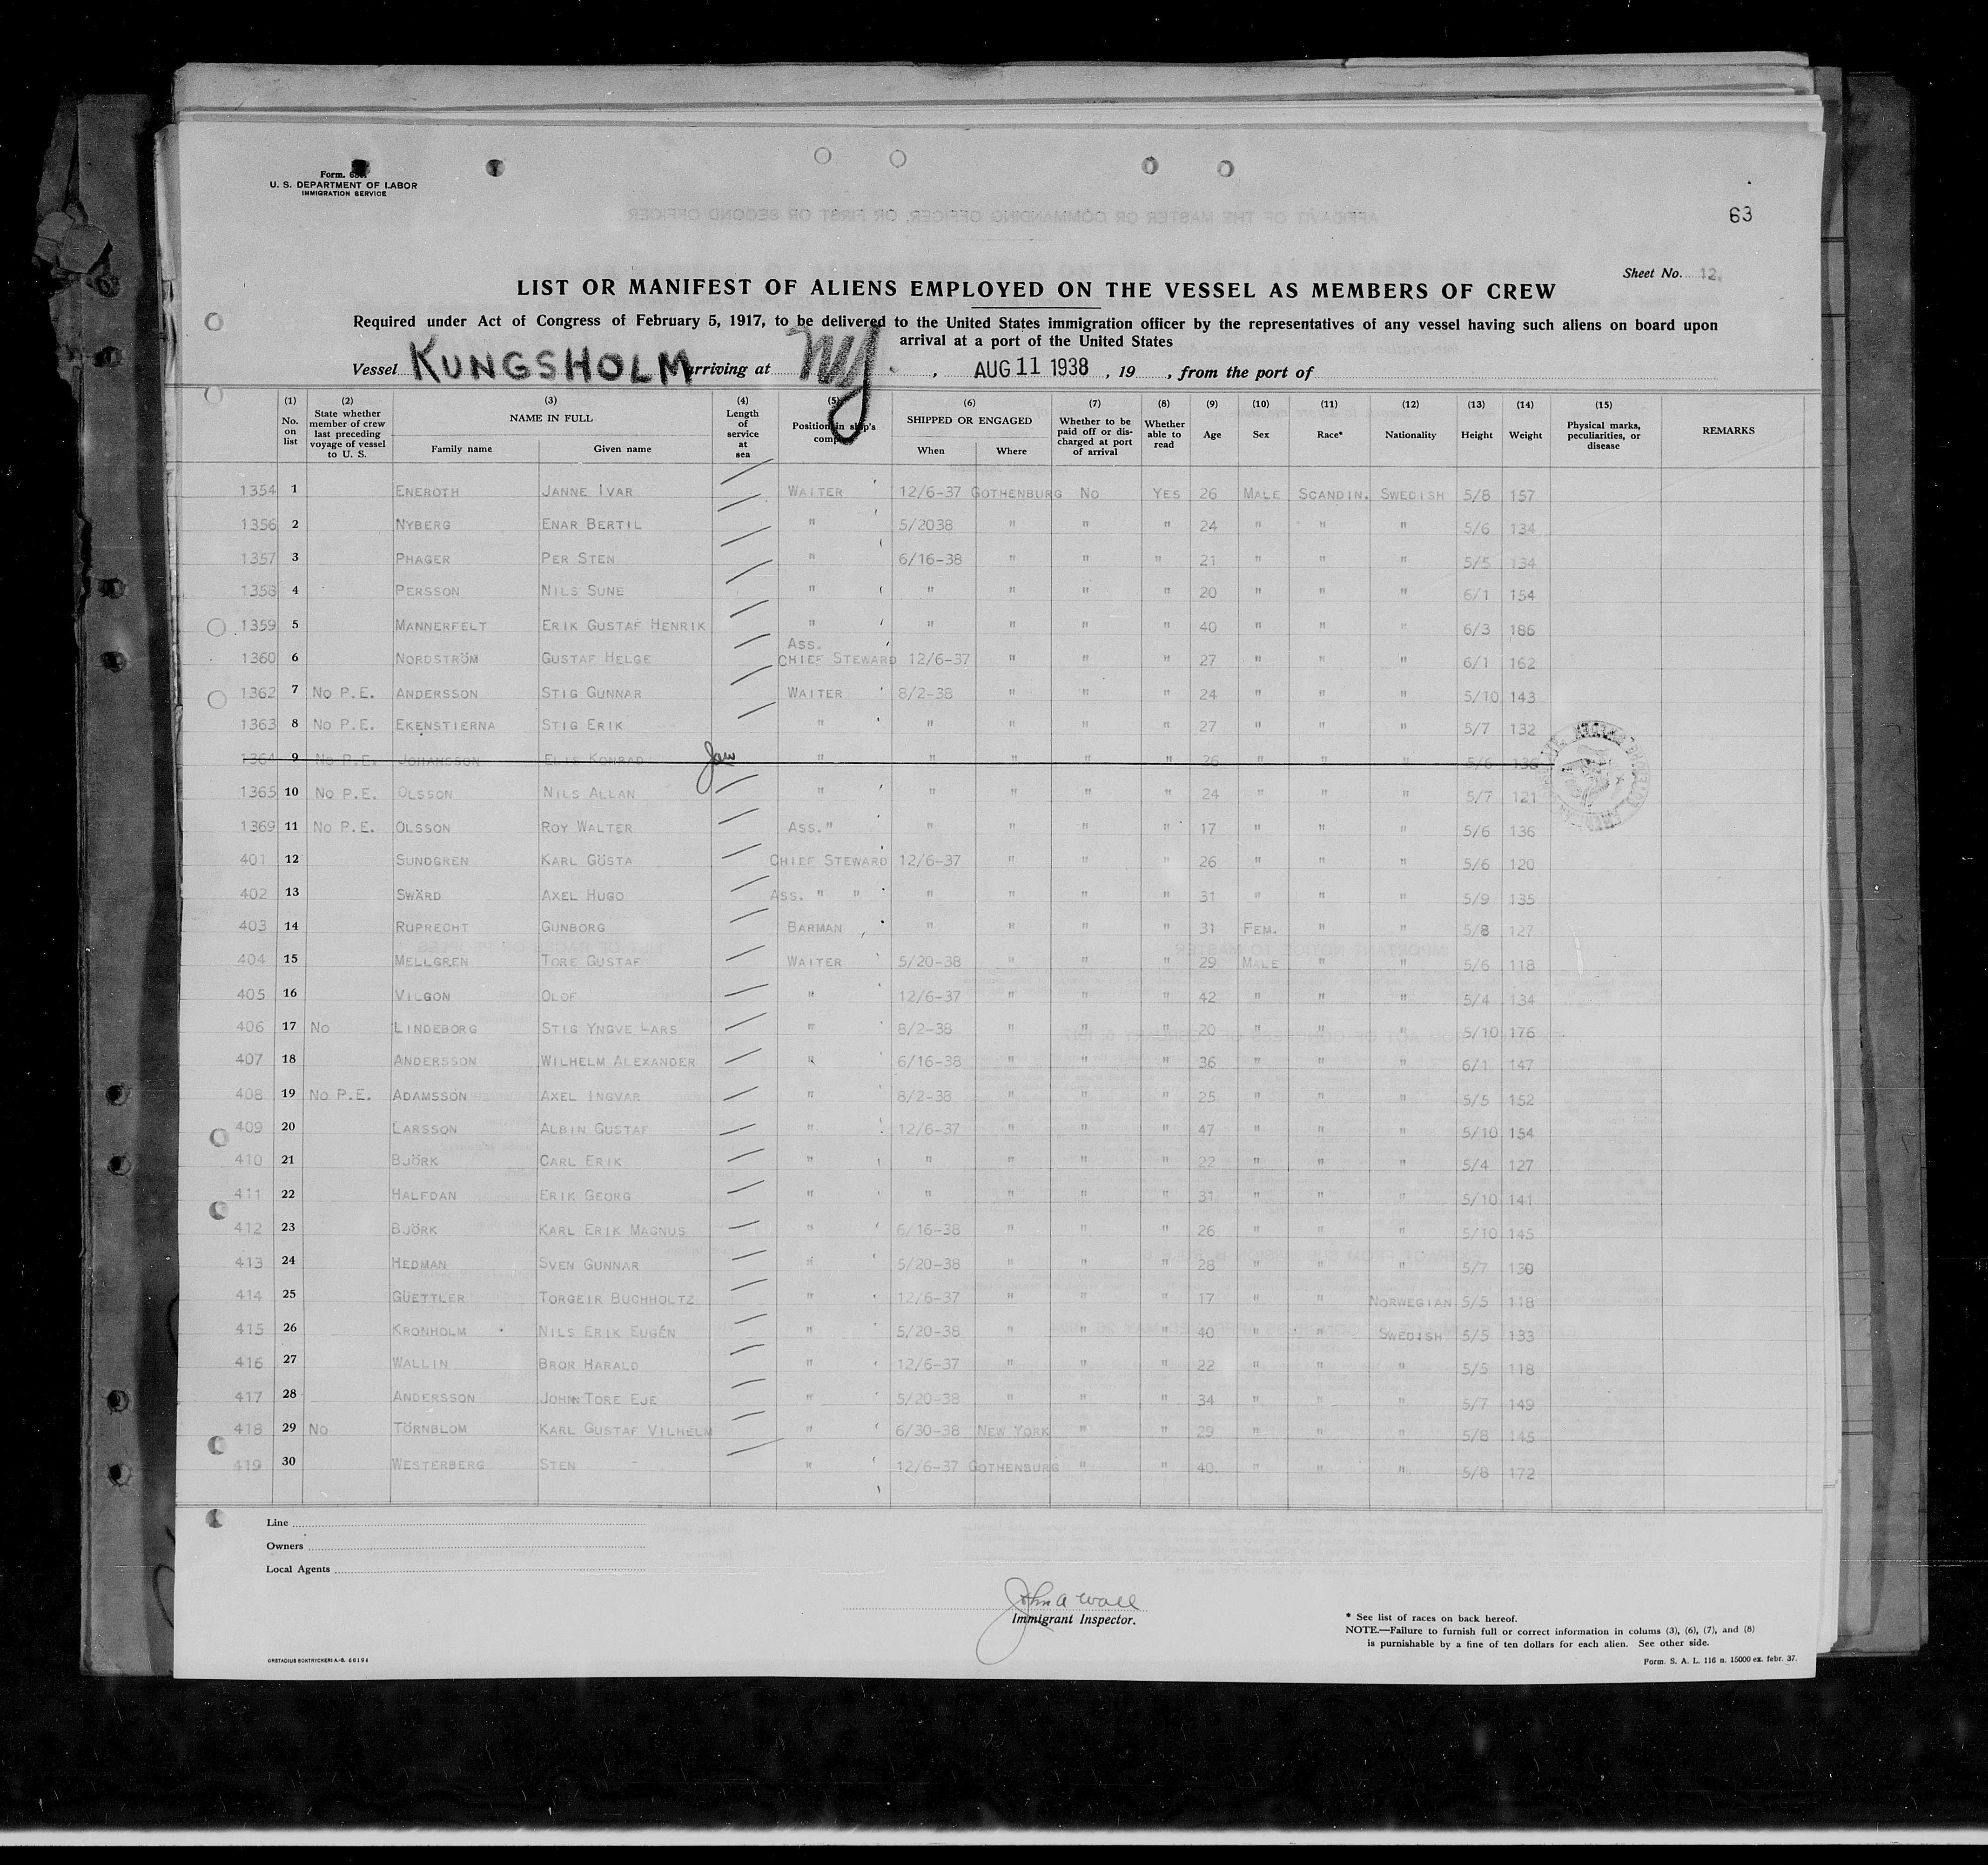 Form.
U. S. DEPARTMENT OF LABOR
IMMIGRATION SERVICE
63
Sheet No. 12.
LIST OR MANIFEST OF ALIENS EMPLOYED ON THE VESSEL AS MEMBERS OF CREW
Required under Act of Congress of February 5, 1917, to be delivered to the United States immigration officer by the representatives of any vessel having such aliens on board upon
arrival at a port of the United States
Vessel KUNGSHOLM arriving at NY. , AUG 11 1938 , 19 , from the port of
(1) No. on list (2) State whether member of crew last preceding voyage of vessel to U. S. (3) NAME IN FULL Family name Given name (4) Length of service at sea (5) Position in ship's company (6) SHIPPED OR ENGAGED When Where (7) Whether to be paid off or discharged at port of arrival (8) Whether able to read (9) Age (10) Sex (11) Race* (12) Nationality (13) Height (14) Weight (15) Physical marks, peculiarities, or disease REMARKS
1354 1 ENEROTH JANNE IVAR WAITER 12/6-37 GOTHENBURG NO YES 26 MALE SCANDIN. SWEDISH 5/8 157
1356 2 NYBERG ENAR BERTIL " 5/2038 " " " 24 " " " 5/6 134
1357 3 PHAGER PER STEN " 6/16-38 " " " 21 " " " 5/5 134
1358 4 PERSSON NILS SUNE " " " " " 20 " " " 6/1 154
1359 5 MANNERFELT ERIK GUSTAF HENRIK " " " " " 40 " " " 6/3 186
1360 6 NORDSTRÖM GUSTAF HELGE ASS. CHIEF STEWARD 12/6-37 " " " 27 " " " 6/1 162
1362 7 NO P.E. ANDERSSON STIG GUNNAR WAITER 8/2-38 " " " 24 " " " 5/10 143
1363 8 NO P.E. EKENSTIERNA STIG ERIK " " " " " 27 " " " 5/7 132
1364 9 NO P.E. JOHANSSON ELIS KONRAD " " " " " 26 " " " 5/6 136
1365 10 NO P.E. OLSSON NILS ALLAN " " " " " 24 " " " 5/7 121
1369 11 NO P.E. OLSSON ROY WALTER ASS." " " " " 17 " " " 5/6 136
401 12 SUNDGREN KARL GÖSTA CHIEF STEWARD 12/6-37 " " " 26 " " " 5/6 120
402 13 SWÄRD AXEL HUGO ASS. " " " " " " 31 " " " 5/9 135
403 14 RUPRECHT GUNBORG BARMAN " " " " 31 FEM. " " 5/8 127
404 15 MELLGREN TORE GUSTAF WAITER 5/20-38 " " " 29 MALE " " 5/6 118
405 16 VILGON OLOF " 12/6-37 " " " 42 " " " 5/4 134
406 17 NO LINDEBORG STIG YNGVE LARS " 8/2-38 " " " 20 " " " 5/10 176
407 18 ANDERSSON WILHELM ALEXANDER " 6/16-38 " " " 36 " " " 6/1 147
408 19 NO P.E. ADAMSSON AXEL INGVAR " 8/2-38 " " " 25 " " " 5/5 152
409 20 LARSSON ALBIN GUSTAF " 12/6-37 " " " 47 " " " 5/10 154
410 21 BJÖRK CARL ERIK " " " " " 22 " " " 5/4 127
411 22 HALFDAN ERIK GEORG " " " " " 31 " " " 5/10 141
412 23 BJÖRK KARL ERIK MAGNUS " 6/16-38 " " " 26 " " " 5/10 145
413 24 HEDMAN SVEN GUNNAR " 5/20-38 " " " 28 " " " 5/7 130
414 25 GÜETTLER TORGEIR BUCHHOLTZ " 12/6-37 " " " 17 " " NORWEGIAN 5/5 118
415 26 KRONHOLM NILS ERIK EUGÉN " 5/20-38 " " " 40 " " SWEDISH 5/5 133
416 27 WALLIN BROR HARALD " 12/6-37 " " " 22 " " " 5/5 118
417 28 ANDERSSON JOHN TORE EJE " 5/20-38 " " " 34 " " " 5/7 149
418 29 NO TÖRNBLOM KARL GUSTAF VILHELM " 6/30-38 NEW YORK " " 29 " " " 5/8 145
419 30 WESTERBERG STEN " 12/6-37 GOTHENBURG " " 40. " " " 5/8 172
Line
Owners
Local Agents
John A Wall
Immigrant Inspector.
* See list of races on back hereof.
NOTE.—Failure to furnish full or correct information in colums (3), (6), (7), and (8)
is punishable by a fine of ten dollars for each alien. See other side.
ORSTADIUS BOKTRYCKERI A.-B. 66194
Form. S. A. L. 116 n. 15000 ex. febr. 37.